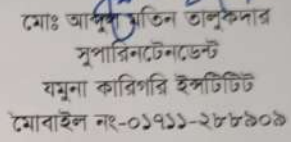 মোঃ আব্দুল মতিন তালুকদার
সুপারিনটেনডেন্ট
যমুনা কারিগরি ইন্সটিটিউট
মোবাইল নং-০১৭১১-২৮৮৯০৯